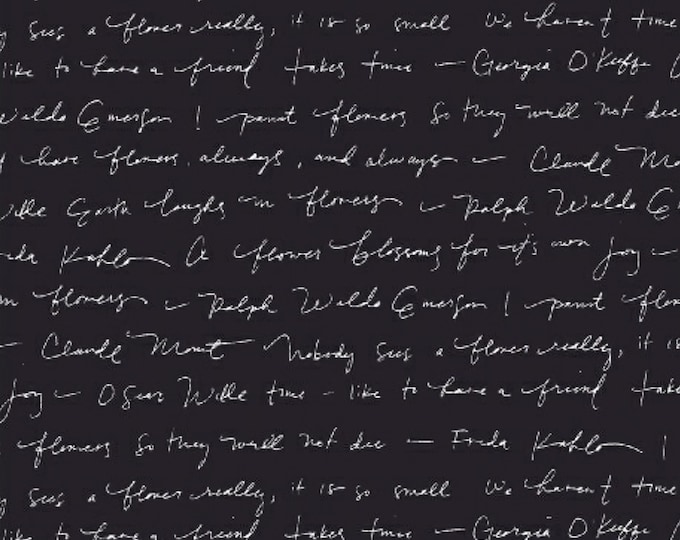 sees a flower really, it is so small We haven't time
like to have a friend takes time — Georgia O'Keffe
Waldo Emerson I paint flowers so they will not die
have flowers, always, and always — Claude Mon
Wilde Earth laughs in flowers — Ralph Waldo E
da Kahlo A flower blossoms for it's own joy —
in flowers — Ralph Waldo Emerson I paint flow
— Claude Monet Nobody sees a flower really, it is
joy — Oscar Wilde time - like to have a friend take
flowers so they will not die — Frida Kahlo I
sees a flower really, it is so small We haven't time
like to have a friend takes time — Georgia O'Keffe